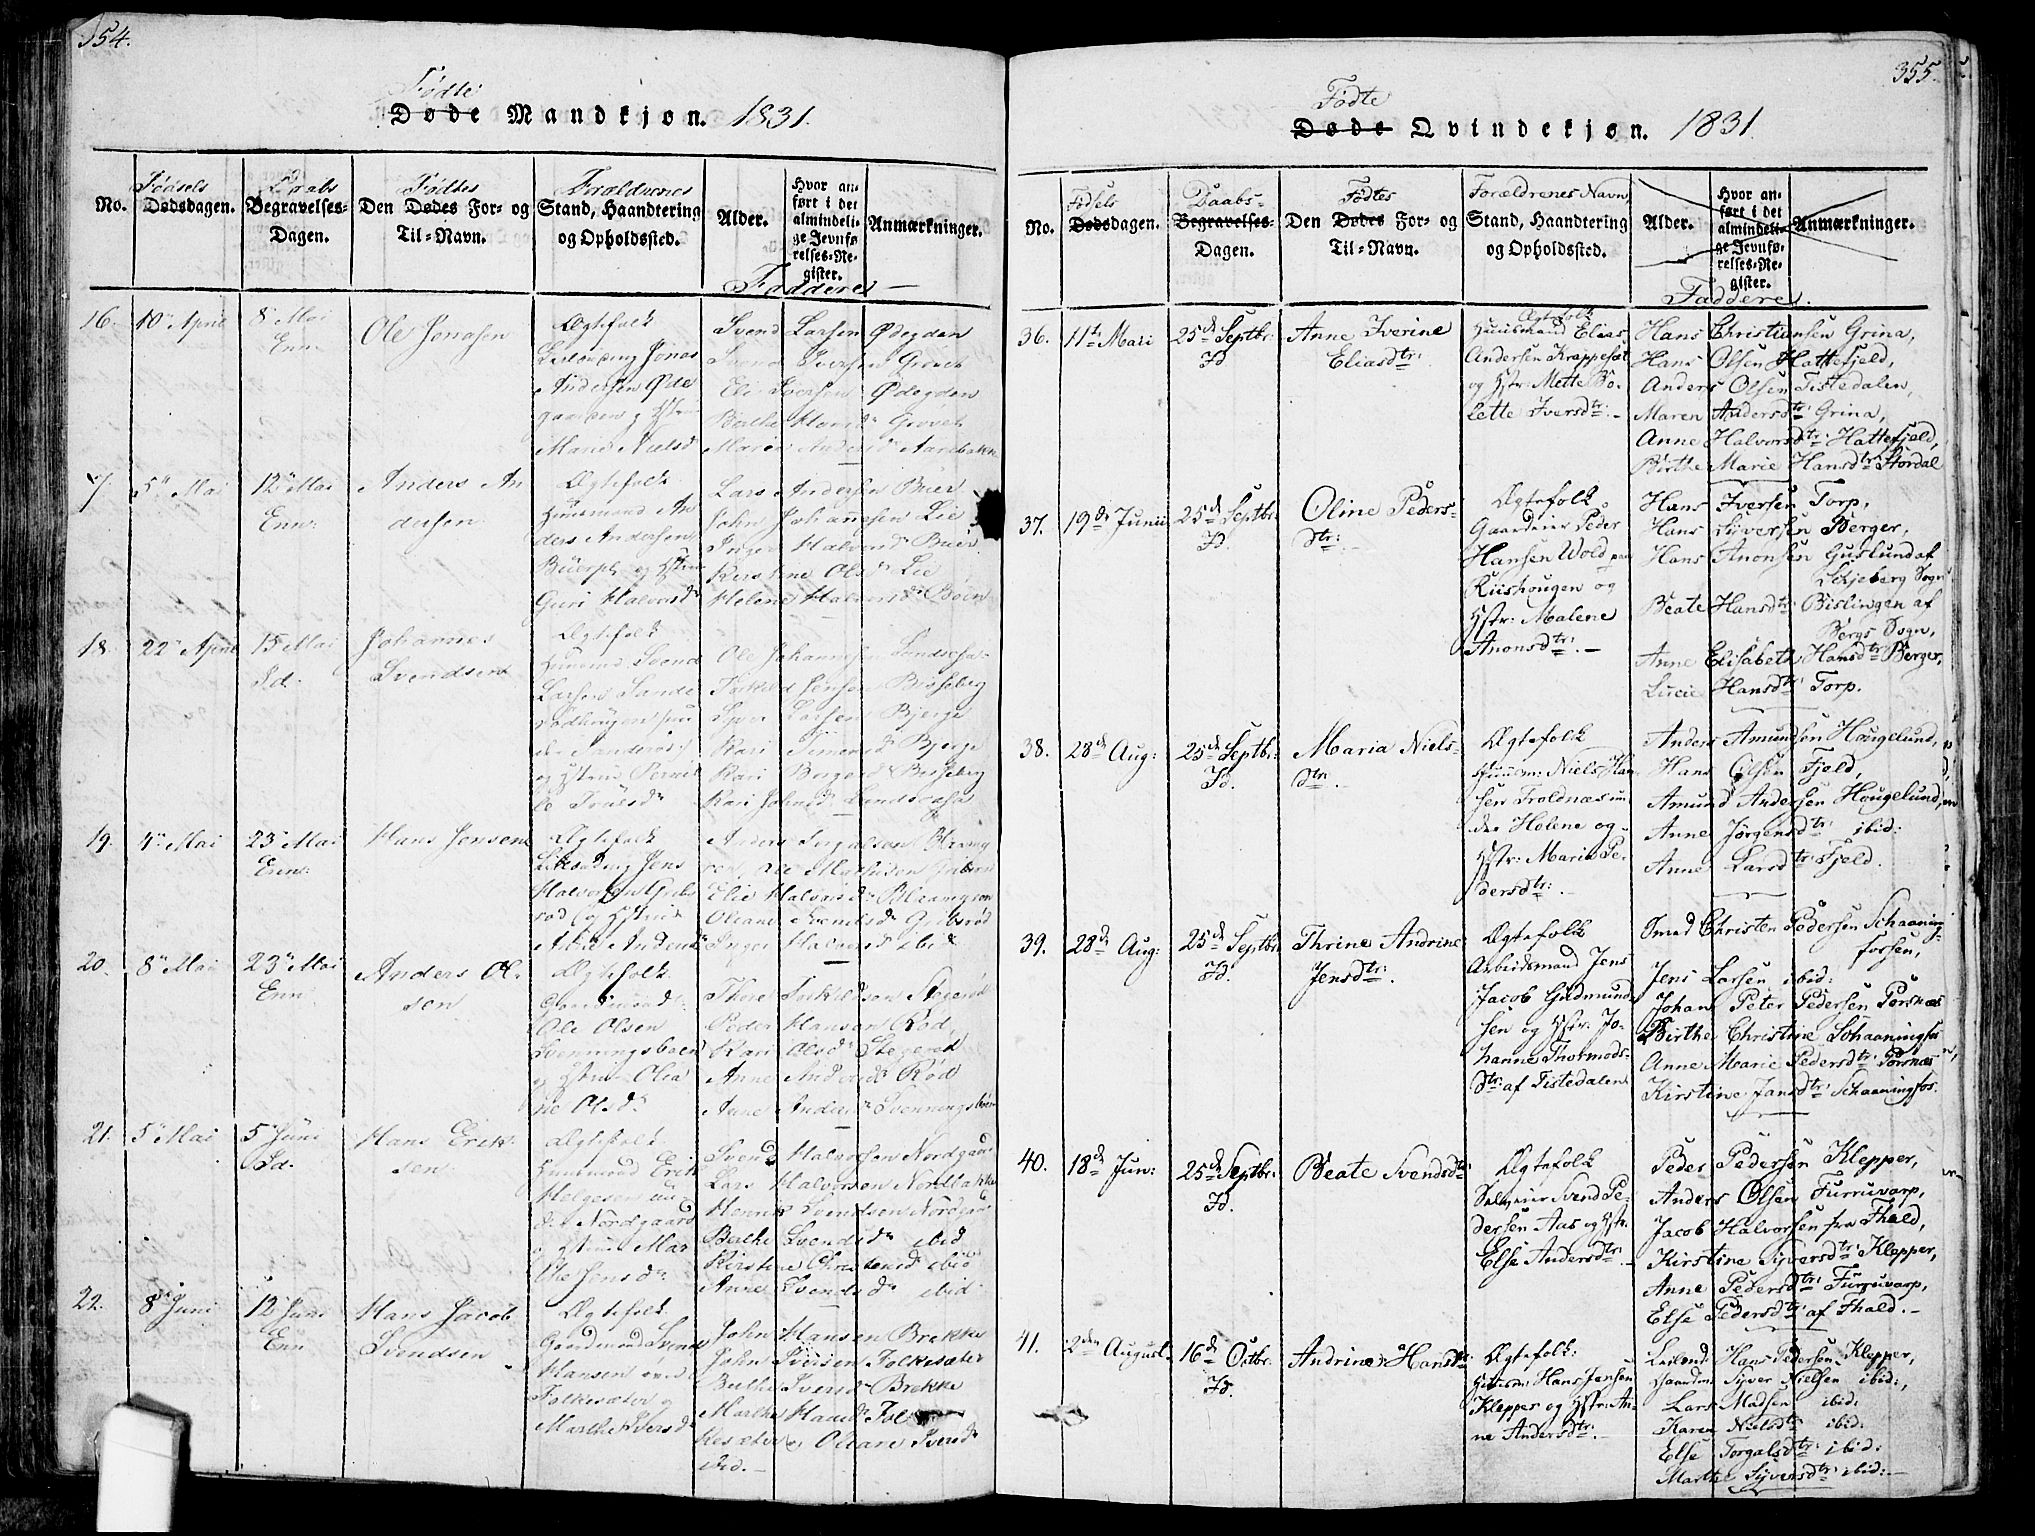 354.
Fødte
Døde Mandkjøn. 1831.
No.
Fødsels
Dødsdagen.
Daabs
Begravelses-
Dagen.
Fødtes
Den Dødes For- og
Til-Navn.
Forældrenes
Stand, Haandtering
og Opholdssted.
Alder.
Hvor an-
ført i det
almindeli-
ge Jevnfø-
relses-Re-
gister.
Anmærkninger.
Faddere
16. 10 April 8 Mai
Enn.
Ole Jonasen
Ægtefolk
Jonas
Andersen Øde
gaarden og Hstru
Marie Nielsd
Svend Larsen Ødegden
Svend Iversen
Eli Iversen Ødegden
Berthe Hansd
Maren Andersd
7. 5 Mai 12 Mai
Enn:
Anders An
dersen
Ægtefolk
Huusmand An
ders Andersen
og Hstru
Guri Halvorsd
Lars Andersen Buer
John Johannesen Lie
Inger Halvorsd Buer
Kirstine Olsd Lie
Helene Halvorsd Böen
18. 22 April 15 Mai
Id.
Johannes
Svendsen
Ægtefolk
Huusmd Svend
Larsen Sande
un
der
og Hstru Pernil
le
Ole Johannesen
Torkild Jensen Berseberg
Iver Larsen Bjerge
Kari Simensd Bjerge
Kari Borgersd Berseberg
Kari Johnsd
19. 4 Mai 23 Mai
Enn:
Hans Jensen
Ægtefolk
Jens
Halvorsen Gribs
rød og Hstrue
Anders
rød, Ole Mathisen
Elie Halvorsd
Oleane Svendsd Gribsrød
Inger Halvorsd ibid
20. 8 Mai 23 Mai
Enn
Anders Ol-
sen
Ægtefolk
Gaardmand
Ole Olsen
Svenningsbøen
og Hstrue Olea
ne Olsd
Thore Torkildsen Stegerød
Peder Hansen Rød,
Kari Olsd Stegerød
Anne Andersd Rød
Anne Andersd Svenningsbøen
21. 5 Mai 5 Juni
Id.
Hans Erik-
sen
Ægtefolk
Huusmand Erik
Helgesen un-
der Nordgaard
og Hstrue Mar
the Jensd
Svend Halvorsen Nordgaard
Lars Halvorsen Nordbakke
Henrik Svendsen Nordgaard
Berthe Svendsd ibid
Kirstine Christensd ibid
Anne Svendsd ibid
22. 8 Juni 12 Juni
Enn
Hans Jacob
Svendsen
Ægtefolk
Gaardmand Svend
Hansen
Folkesæter og
Marthe Iversd
John Hansen Brekke
John Iversen Folkesæter
Berthe Iversd Brekke
Marthe Hansd Fol
kesæter Oleane Iversd
ibid. —
355.
Fødte
Døde Qvindekjøn. 1831.
No.
Fødsels
Dødsdagen.
Daabs-
Begravelses-
Dagen.
Fødtes
Den Dødes For- og
Til-Navn.
Forældrenes Navn,
Stand, Haandtering
og Opholdssted.
Alder.
Hvor an-
ført i det
almindeli-
ge Jevnfø-
relses-Re-
gister.
Anmærkninger.
Faddere.
36. 11te Mari 25de Septbr.
Id.
Anne Iverine
Eliasdtr:
Ægtefolk
Huusmand Elias
Andersen Krappesæt
og Hstr: Mette Bo-
lette Iversdtr: —
Hans Christiansen Grina,
Hans Olsen Hattefjeld,
Anders Olsen Tistedalen,
Maren Andersdtr: Grina,
Anne Halvorsdtr: Hattefjeld,
Birthe Marie Hansdtr: Stordal
37. 19de Junii 25de Septbr.
Id.
Oline Peders-
dtr: —
Ægtefolk
Gaardeier Peder
Hansen Wold paa
Riishougen og
Hstr: Malene
Anonsdtr: —
Hans Iversen Torp,
Hans Syversen Berger,
Hans Anonsen Guslund af
Schjeberg Sogn
Beate Hansdtr: Bislingen af
Bergs Sogn,
Anne Elisabeth Hansdtr: Berger,
Lucie Hansdtr: Torp.
38. 28de Aug: 25de Septbr:
Id.
Maria Niels-
dtr: —
Ægtefolk
Huusm: Niels Han
sen Troldnæs un
der Holene og
Hstr: Marie Pe-
dersdtr: —
Anders Amundsen Hougelund,
Hans Olsen Fjeld,
Amund Andersen Hougelund,
Anne Jørgensdtr: ibid:
Anne Larsdtr: Fjeld.
39. 28de Aug: 25de Septbr.
Id.
Thrine Andrine
Jensdtr:
Ægtefolk
Arbeidsmand Jens
Jacob Gudmund-
sen og Hstr. Jo-
hanne Thormods-
dtr: af Tistedalen
Smed Christen Pedersen Schaaning-
forsen,
Jens Larsen ibid:
Johan Peter Pedersen Porsnæs
Birthe Christine Schaaningfos
Anne Marie Pedersdtr: Porsnæs
Kirstine Jansdtr: Schaaningfos.
40. 18de Jun: 25de Septbr.
Id.
Beate Svendsdtr:
Ægtefolk
Svend Pe-
dersen Aas og Hstr.
Else Andersdtr: —
Peder Pedersen Klepper,
Anders Olsen Furruvarp,
Jacob Halvorsen fra Thald,
Kirstine Syversdtr: Klepper,
Anne Pedersdtr: Furruvarp,
Else Pedersdtr: af Thald. —
41. 2den August. 16de Octbr.
Id.
Andrine Hansdtr:
Ægtefolk:
Hans Jensen
Klepper og Hstr: An-
ne Andersdtr: —
Leilend: Hans Pedersen Klepper,
Gaardm: Syver Nielsen ibid:,
Lars Madsen ibid:
Karen Nielsdtr: ibid:
Else Torgalsdtr: ibid:
Marthe Syversdtr: ibid: —